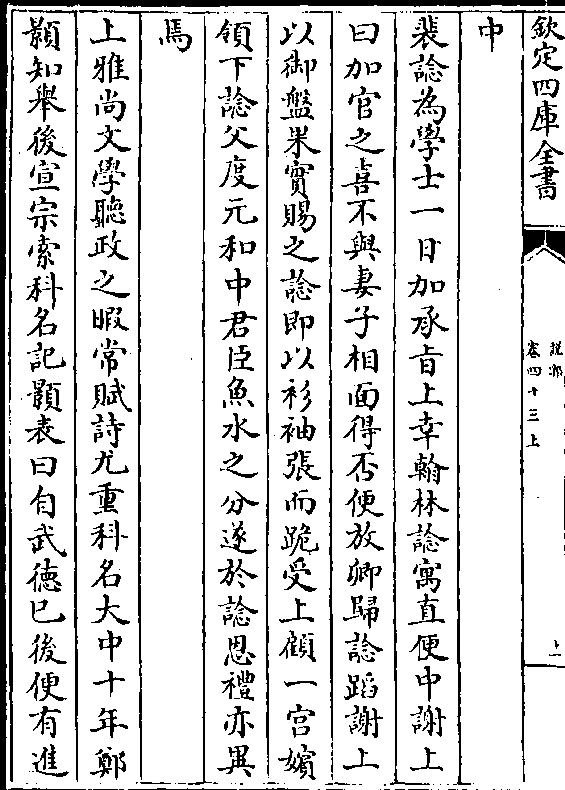 欽定四庫全書
說郛
卷四十三上
中
裴諗為學士一日加承旨上幸翰林諗寓直便中謝上
曰加官之喜不與妻子相面得否便放卿歸諗蹈謝上
以御盤果實賜之諗即以衫袖張而跪受上顧一宮嬪
領下諗父度元和中君臣魚水之分遂於諗恩禮亦異
焉
上雅尚文學聽政之暇常賦詩尤重科名大中十年鄭
顥知舉後宣宗索科名記顥表曰自武德已後便有進